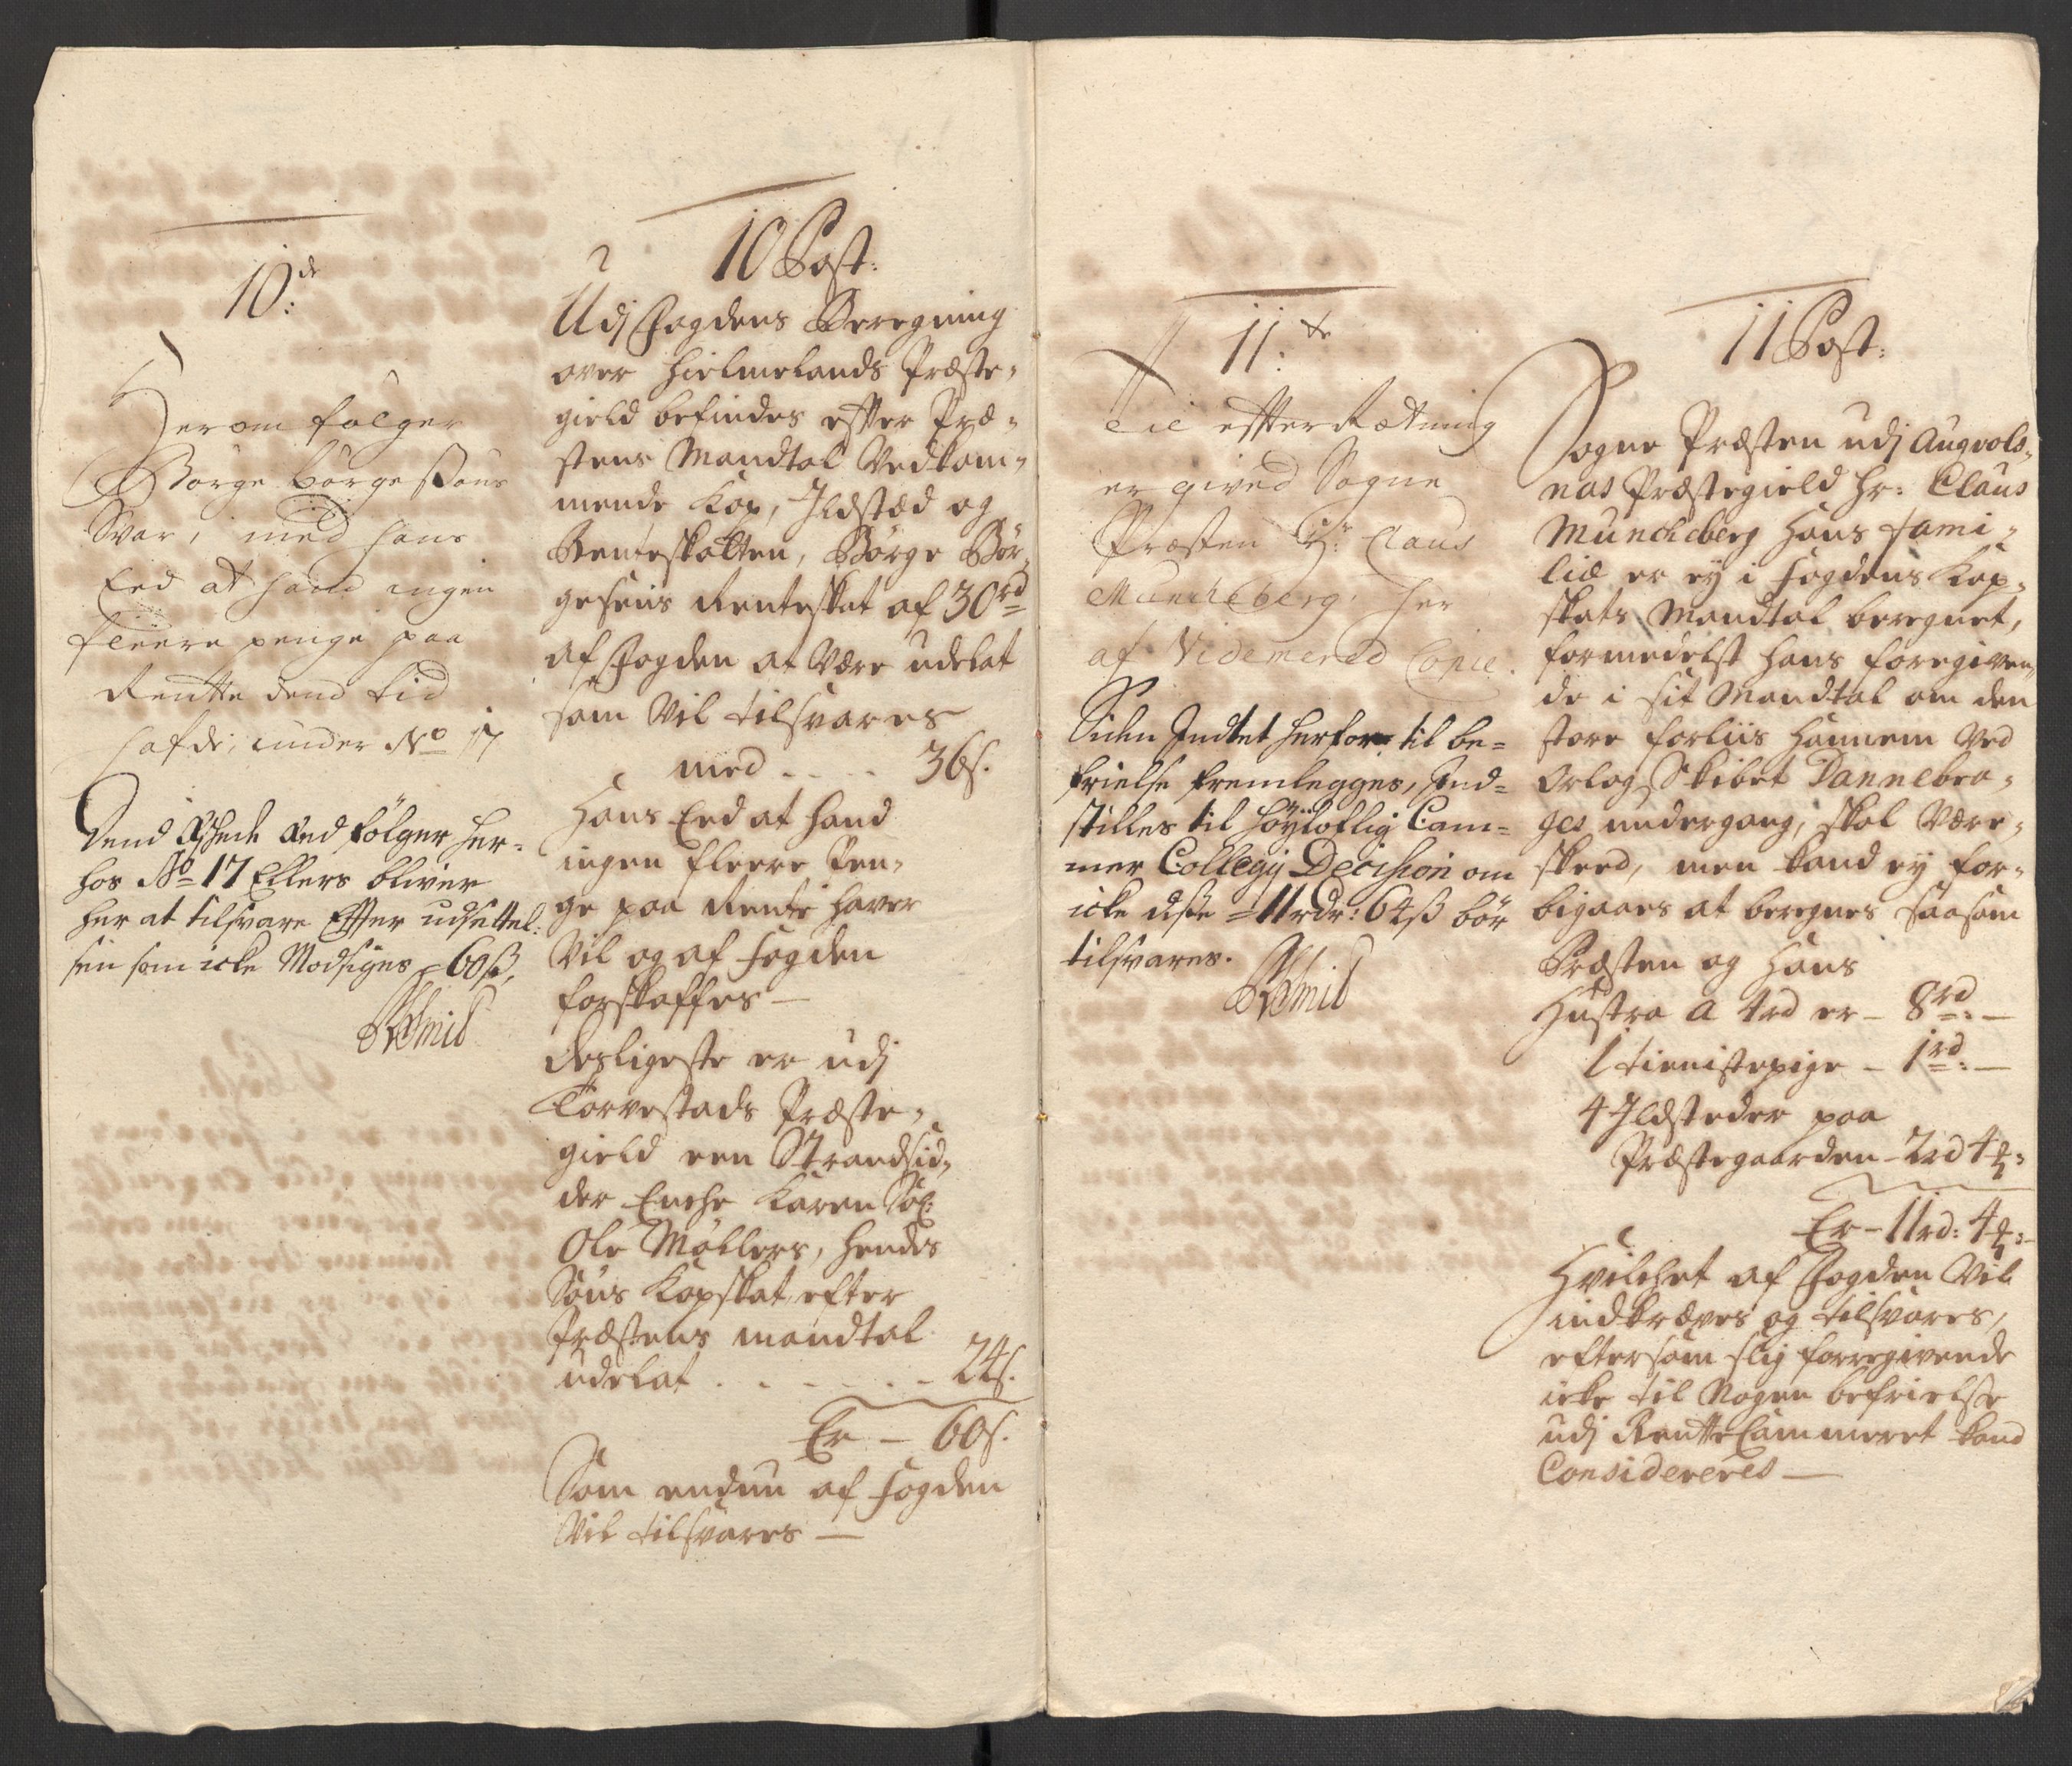 10de
Herom følger
Børge børgessøns
Svar, med hans
Eed at hand ingen
fleere penge paa
Rentte dend tid
hafde, under No 17
Dend Eed følger her-
hos No 17 Ellers bliver
her at tilsvare Effter udsettel-
sen som icke Modsiges = 60ß,
10 Post:
Udj Fogdens Beregning
over Hielmelands Præste-
gield befindes effter Præ-
stens Mandtal Vedkom-
mende Kop, Ildstæd og
Renteskatten, Børge Bør-
gesens Renteskat af 30rd
af Fogden at Være udelat
som Vil tilsvares
med .... 36s.
Hans Eed at hand
ingen fleere Pen-
ge paa Rente haver
Vil og af Fogden
forskaffes —
Desligeste er udj
Torvestads Præste-
gield een Strandsid-
der Enche Karen Sal:
Ole Møllers, hendes
Søns Kopskat efter
Præstens mandtal
udelat . . - - - - 24s.
Er — 60s.
Som endnu af Fogden
Vil tilsvares —
11.te
Til effterRætning
er gived Sogne
Præsten Hr. Claus
Muncheberg. her
af Videmered Copie.
Siden Indtet herfor til be-
frielse fremlegges, Ind-
stilles til Høyloflig Cam-
mer Collegij Decission om
icke disse = 11rdr: 64ß bør
tilsvares.
11 Post:
Sogne Præsten udj Augvols-
nas Præstegield Hr: Claus
Muncheberg Hans Fami-
lie er ey i Fogdens Kop-
skats Mandtal beregnet,
formedelst hans foregiven-
de i sit Mandtal om den
store forliis Hannem Ved
Orlog Skibet Dannebro-
ges undergang, skal Være
skeed, men kand ey for-
bigaaes at beregnes saasom
Præsten og Hans
Hustro a 4rd er — 8rd: —
1 tienistepige — 1rd: —
4 Ildsteder paa
Præstegaarden — 2rd 4
Er — 11rd: 4
Hvilchet af Fogden Vil
indkræves og tilsvares,
eftersom slig forregivende
icke til Nogen befrielse
udj RentteCammeret kand
Considereres —